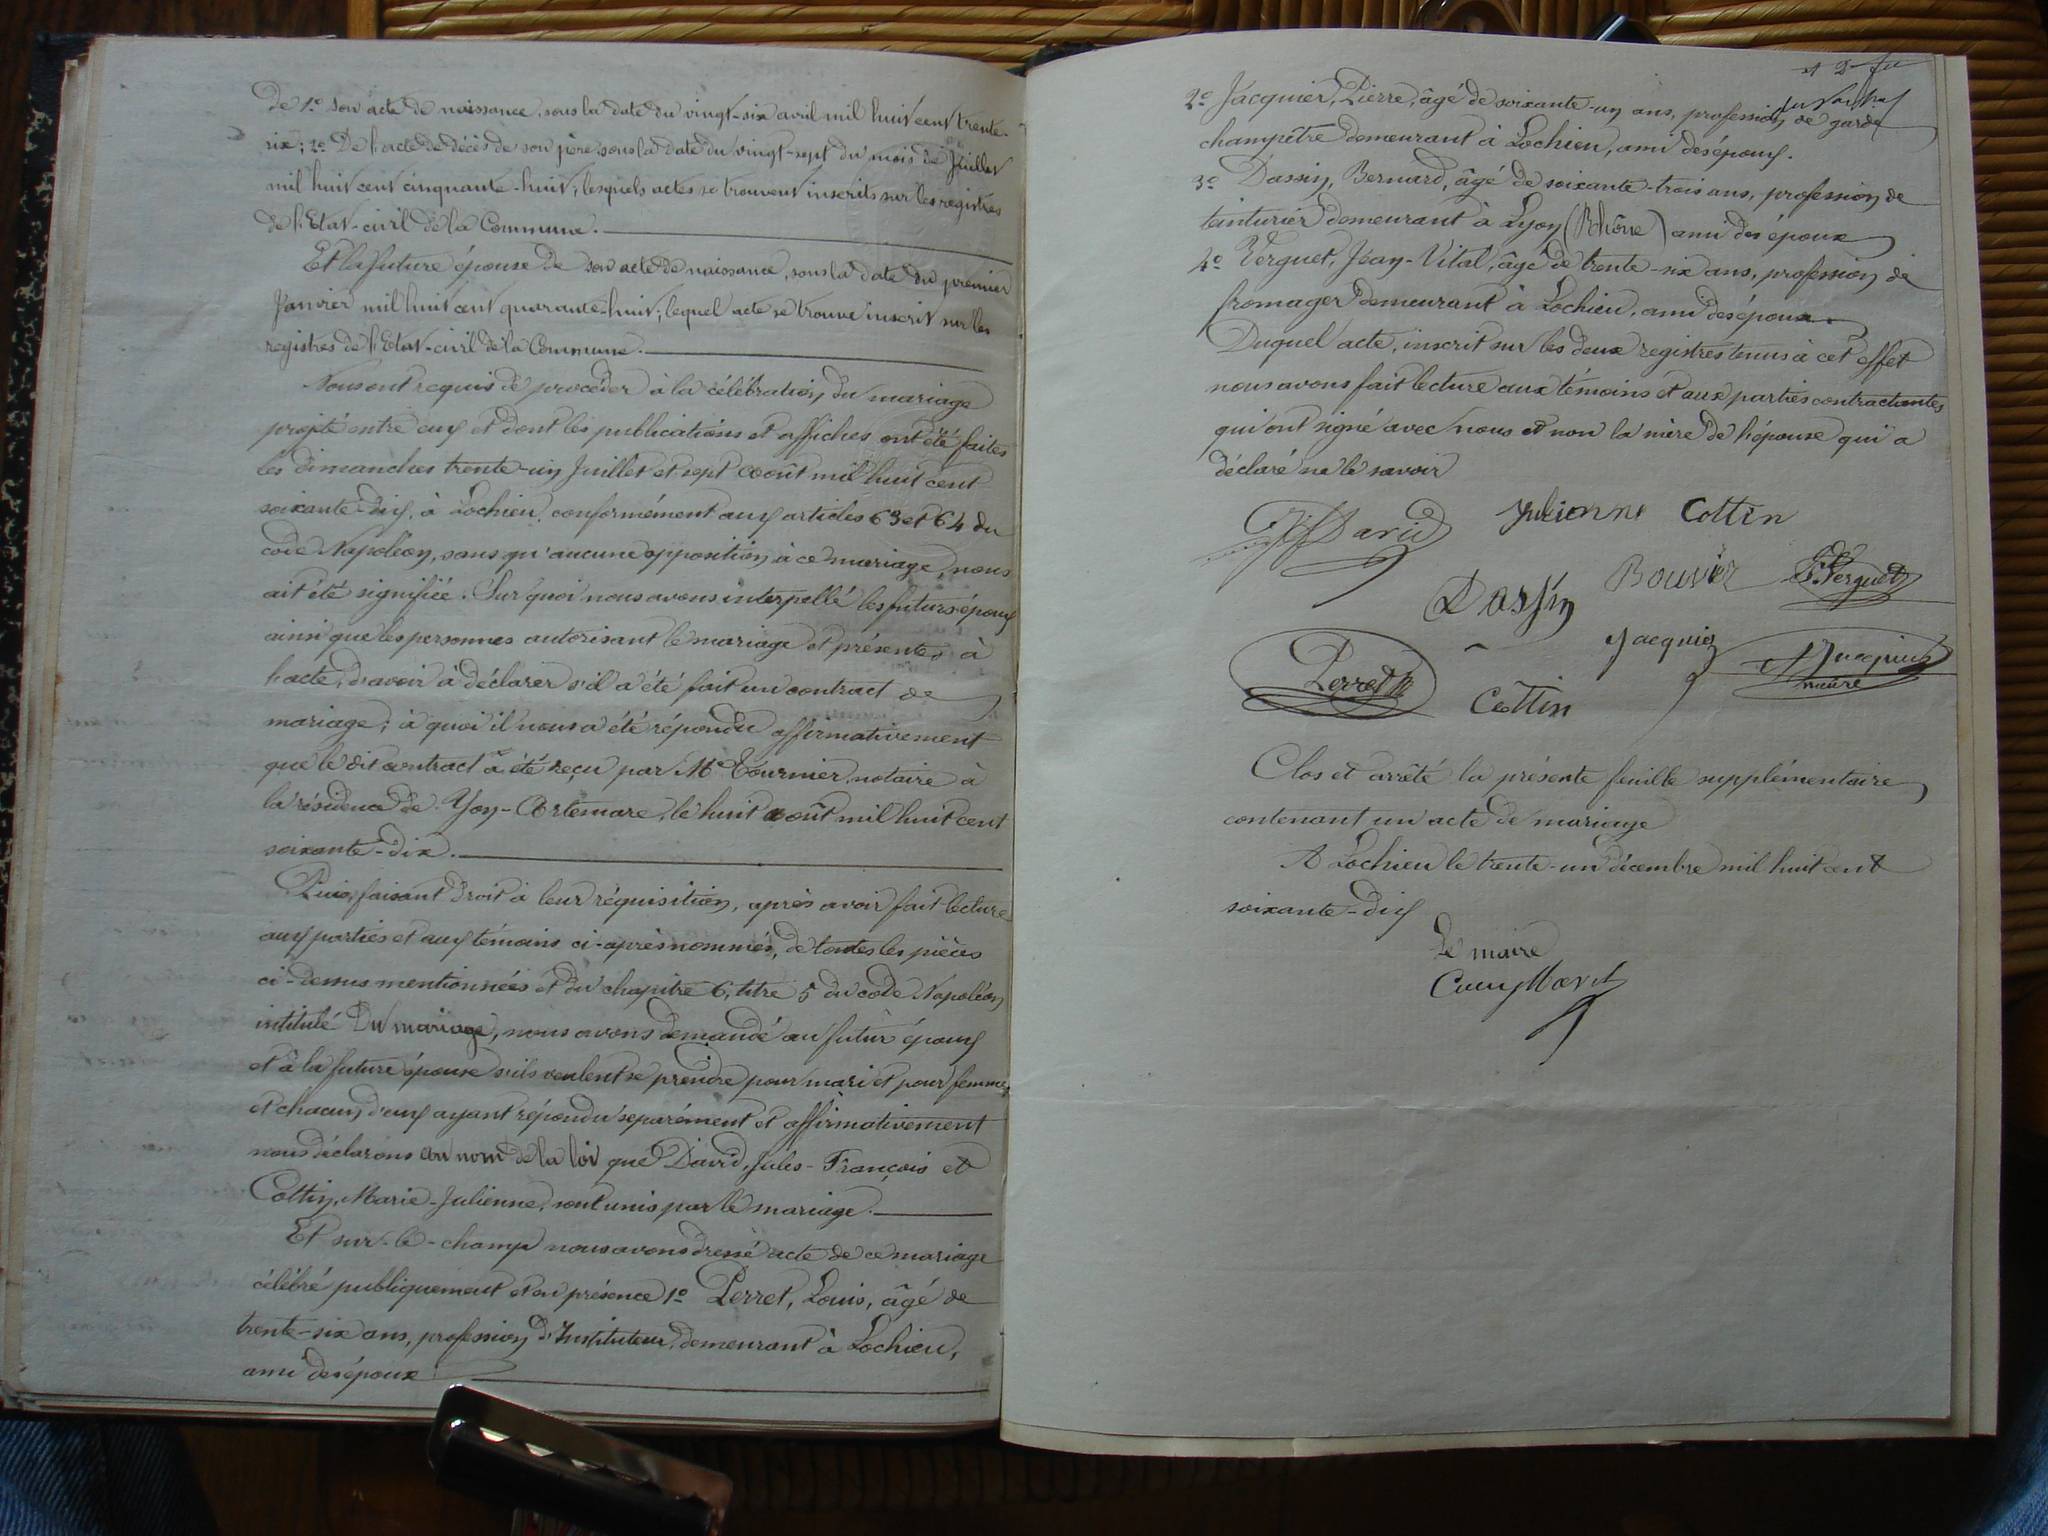 De 1.º son acte de naissance, sous la date du vingt-six avril mil huit cent trente-
six; 2.º De l'acte de décès de son père sous la date du vingt-sept du mois de Juillet
mil huit cent cinquante-huit, lesquels actes se trouvent inscrits sur les registres
de l'Etat-civil de la Commune.
Et la future épouse de son acte de naissance, sous la date du premier
Janvier mil huit cent quarante-huit; lequel acte se trouve inscrit sur les
registres de l'Etat-civil de la Commune.
Nous ont requis de procéder à la célébration du mariage
projeté entre eux et dont les publications et affiches ont été faites
les dimanches trente-un Juillet et sept août mil huit cent
soixante-dix, à Lochieu, conformément aux articles 63 et 64 du
code Napoléon, sans qu'aucune opposition à ce mariage, nous
ait été signifiée. Sur quoi nous avons interpellé les futurs époux
ainsi que les personnes autorisant le mariage et présentes à
l'acte, d'avoir à déclarer s'il a été fait un contract de
mariage; à quoi il nous a été répondu affirmativement
que le dit contract a été reçu par Me Tournier, notaire à
la résidence de Yon-Artemare, le huit août mil huit cent
soixante-dix.
Puis, faisant droit à leur réquisition, après avoir fait lecture
aux parties et aux témoins ci-après nommés, de toutes les pièces
ci-dessus mentionnées et du chapitre 6, titre 5 du code Napoléon
intitulé Du mariage, nous avons demandé au futur époux
et à la future épouse s'ils veulent se prendre pour mari et pour femme,
et chacun d'eux ayant répondu séparément et affirmativement
nous déclarons au nom de la loi que David, Jules-François et
Cottin, Marie-Julienne, sont unis par le mariage.
Et sur-le-champ nous avons dressé acte de ce mariage
célébré publiquement et en présence 1º Perret, Louis, âgé de
trente-six ans, profession d'Instituteur, demeurant à Lochieu,
ami des époux
2º Jacquier, Pierre, âgé de soixante-un ans, profession de garde
champêtre demeurant à Lochieu, ami des époux.
3º Dassin, Bernard, âgé de soixante-trois ans, profession de
teinturier demeurant à Lyon (Rhône) ami des époux
4º Verguet, Jean-Vital, âgé de trente-six ans, profession de
fromager demeurant à Lochieu, ami des époux.
Duquel acte, inscrit sur les deux registres tenus à cet effet
nous avons fait lecture aux témoins et aux parties contractantes
qui ont signé avec nous et non la mère de l'épouse qui a
déclaré ne le savoir
David
Julienne Cottin
Dassin
Bouvier
Verguet
Perret
Jacquier
Jacquier
maire
Cottin
Clos et arrêté la présente feuille supplémentaire
contenant un acte de mariage
A Lochieu le trente-un décembre mil huit cent
soixante-dix
Le maire